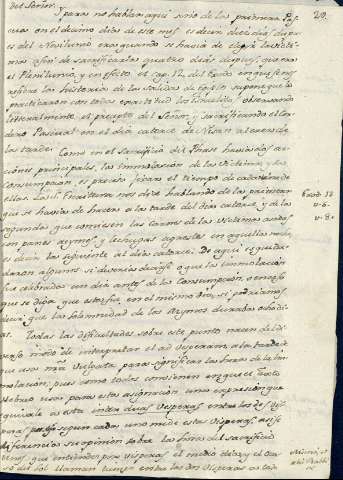 del Señor.
29.
y para no hablar aqui sino de la primera Pas
cua en el decimo dia de este mes es decir diez dias despu
es del Neuilunio era quando se havia de elegir la victi
ma a fin de sacrificarla quatro dias despues, que era
el Plenilunio, y en efecto el cap. 12. del Exodo en que se nos
refiere la historia de la salida de Egipto supone que lo
practicaron con toda exactitud los Israelitas, observando
literalmente el precepto del Señor, y sacrificando el Cor
dero Pascual en el dia catorce de Nisan al caer de
la tarde. Como en el sacrificio del Phase havia dos ac
ciones principales, la immolacion de la Victima, y la
consumpcion, es preciso fijar el tiempo de cada una de
ellas. La Sª. Escritura nos dice hablando de la primera
que se havia de hacer a la tarde del dia catorce, y de la
segunda que comiesen las carnes de la victima asadas
con panes azymos, y lechugas agrestes en aquella noche,
es decir la siguiente al dia catorce. De aqui
daron algunos si deveria decirse que la immolacion
fue celebrada un dia antes de la consumpcion, o en caso
que se diga que esta fue en el mismo dia, si podriamos
decir que la solemnidad de los Azymos durava ocho di
as. Todas las dificultades sobre este punto nacen del di
verso modo de interpretar el ad vesperam, a la tarde de
que usa nra Vulgata para significar la hora de la im
molacion; pues como todos convienen en que el Texto
Hebreo usa para esta asignacion una expresion que
equivale a esta inter duas vesperas, entre las dos vis
peras, segun cada uno mide estas visperas, asi se
diferencia su opinion sobre la hora del sacrificio
Unos, que entienden por visperas, el medio dia, y el oca
so del Sol llaman tiempo entre las dos visperas a toda
Exod. 12
v. 6.
v. 8.